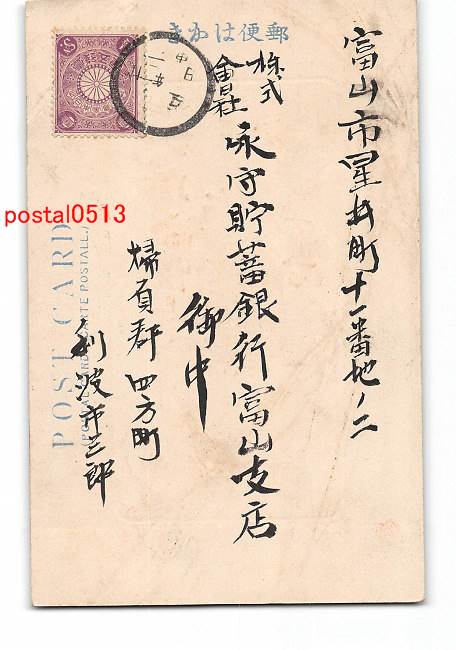 郵便はかき
富山市星井町十一番地ノ二
株式
會社
永守貯蓄銀行富山支店
御中
婦負郡四方町
利波市三郎
postal0513
POST CARD